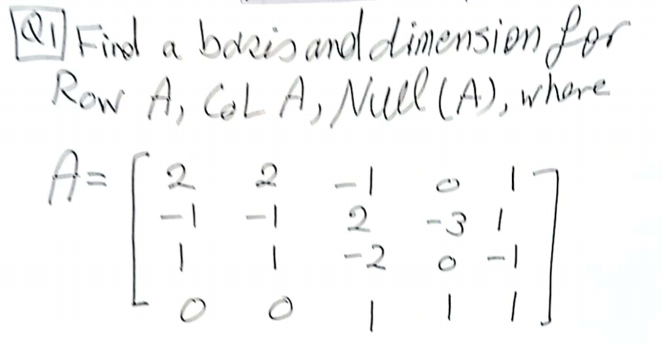 Q1 Find a basis and dimension for
Row A, Col A, Null (A), where
A = [ 2 2 -1 0 1
-1 -1 2 -3 1
1 1 -2 0 -1
0 0 1 1 1 ]